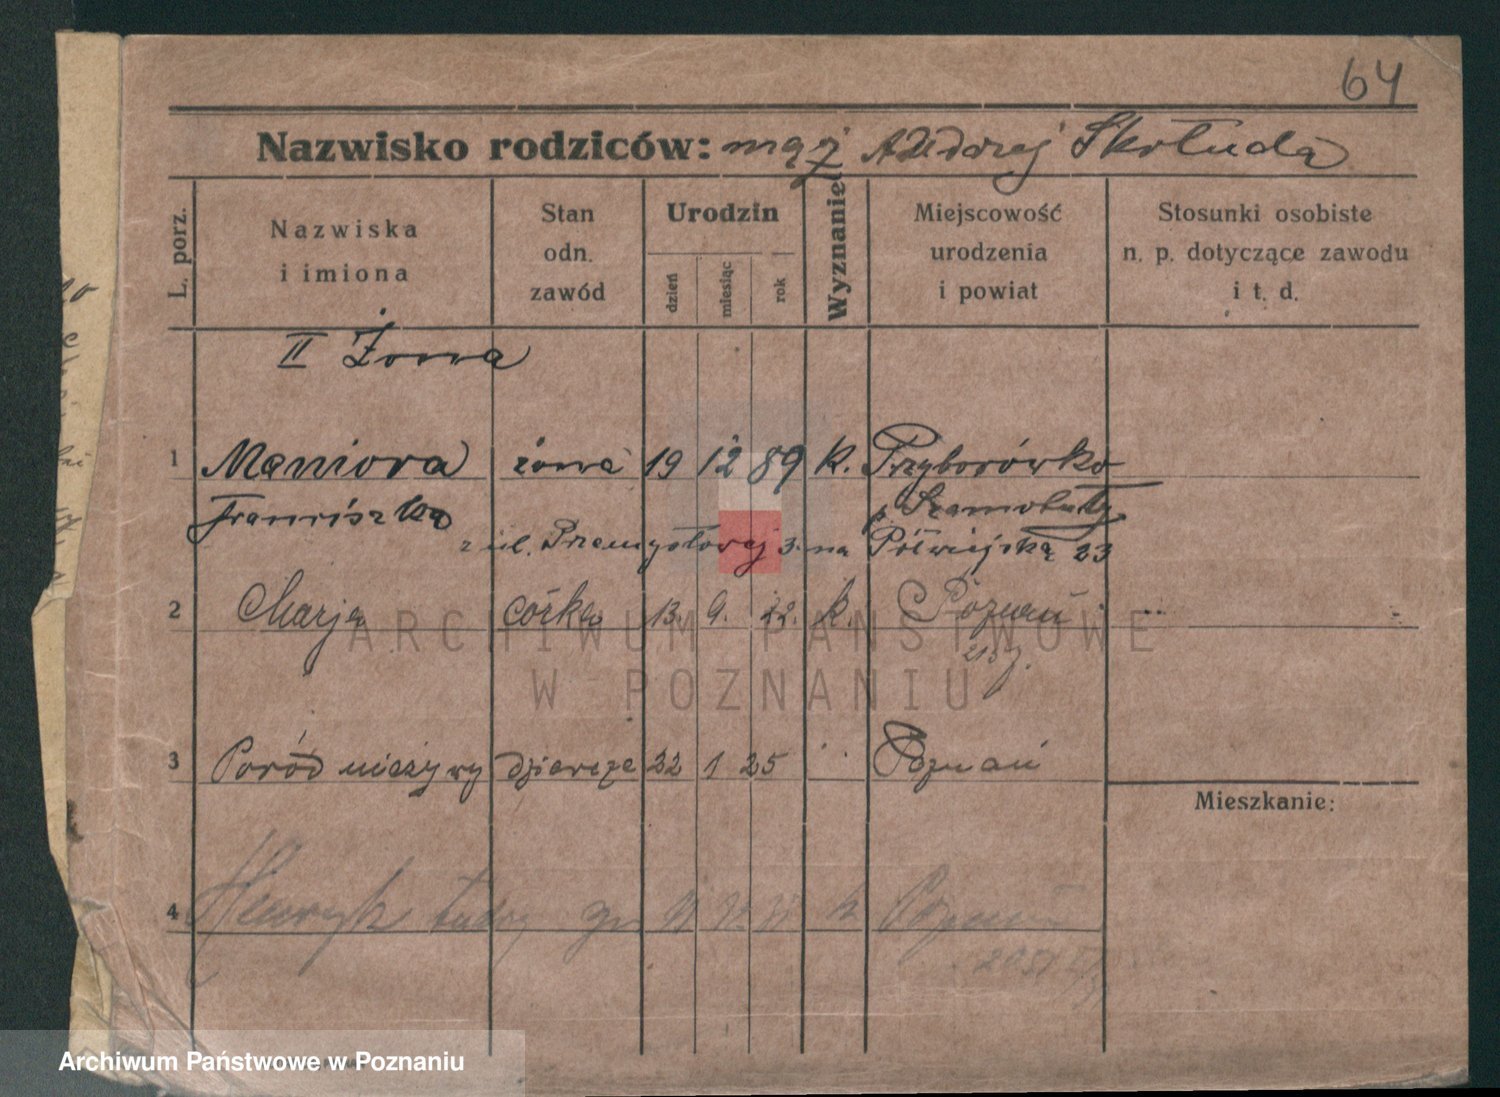 64
Nazwisko rodziców: mąż Andrzej Skołuda
L. porz.
Nazwiska
i imiona
Stan
odn.
zawód
Urodzin
dzień
miesiąc
rok
Wyznanie
Miejscowość
urodzenia
i powiat
Stosunki osobiste
n. p. dotyczące zawodu
i t. d.
II Żona
1 Maniora żona 19 12 89 k. Przyborówko
Franciszka p. Szamotuły
z ul. Przemysłowej 3. na Półwiejską 23
2 Marja córka 13. 9. 22. k. Poznań
3 Poród nieżywy dziewczę 22 1 25 Poznań
Mieszkanie:
4 Henryk k Poznań
ARCHIWUM PAŃSTWOWE
W POZNANIU
Archiwum Państwowe w Poznaniu